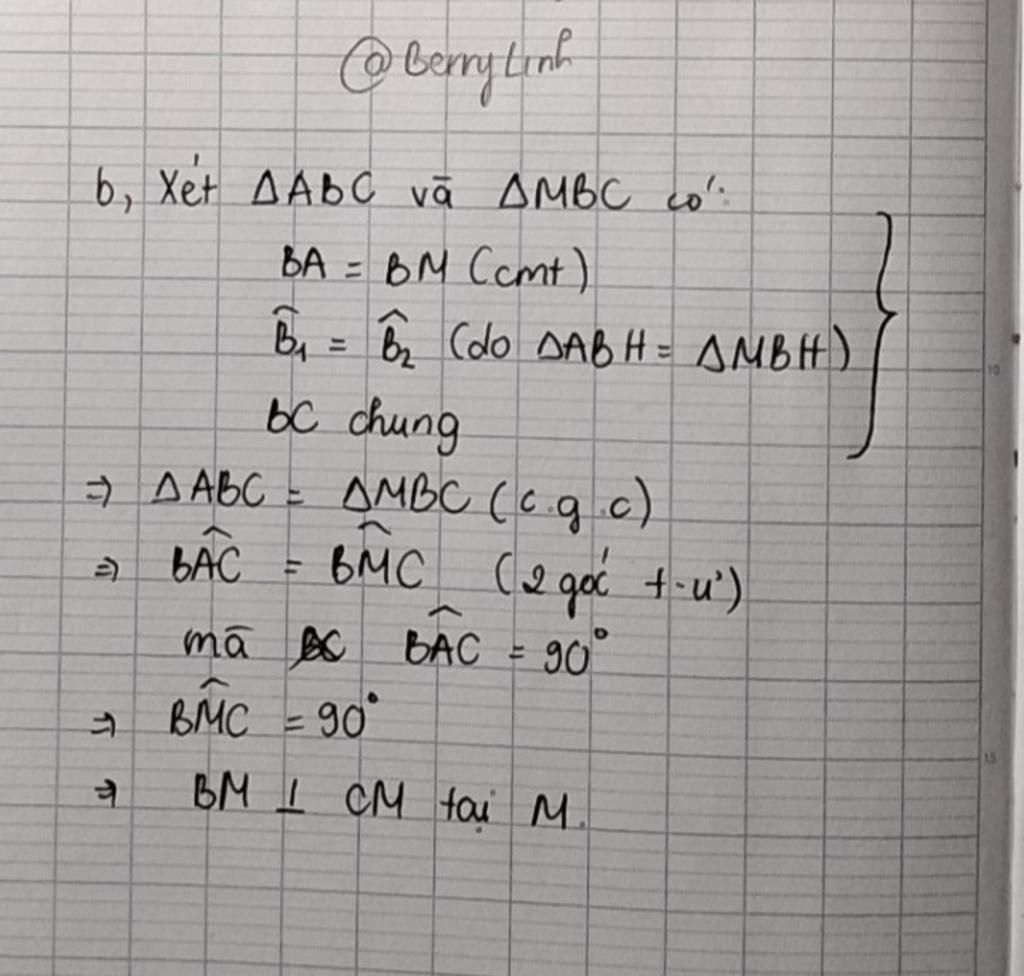 @BerryLinh
b, Xét ΔABC và ΔMBC có:
BA = BM (cmt)
B̂₁ = B̂₂ (do ΔABH = ΔMBH)
BC chung
⇒ ΔABC = ΔMBC (c.g.c)
⇒ BÂC = BM̂C (2 góc t.ư)
mà BÂC = 90°
⇒ BM̂C = 90°
⇒ BM ⊥ CM tại M.
10
15